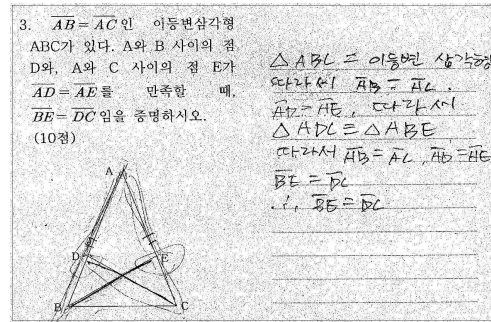 3. AB = AC인 이등변삼각형
ABC가 있다. A와 B 사이의 점
D와, A와 C 사이의 점 E가
AD = AE를 만족할 때,
BE = DC임을 증명하시오.
(10점)
A
D
E
B
C
△ABC = 이등변 삼각형
따라서 AB = AC.
AD = AE, 따라서
△ADC ≡ △ABE
따라서 AB = AC, AD = AE
BE = DC
∴ BE = DC